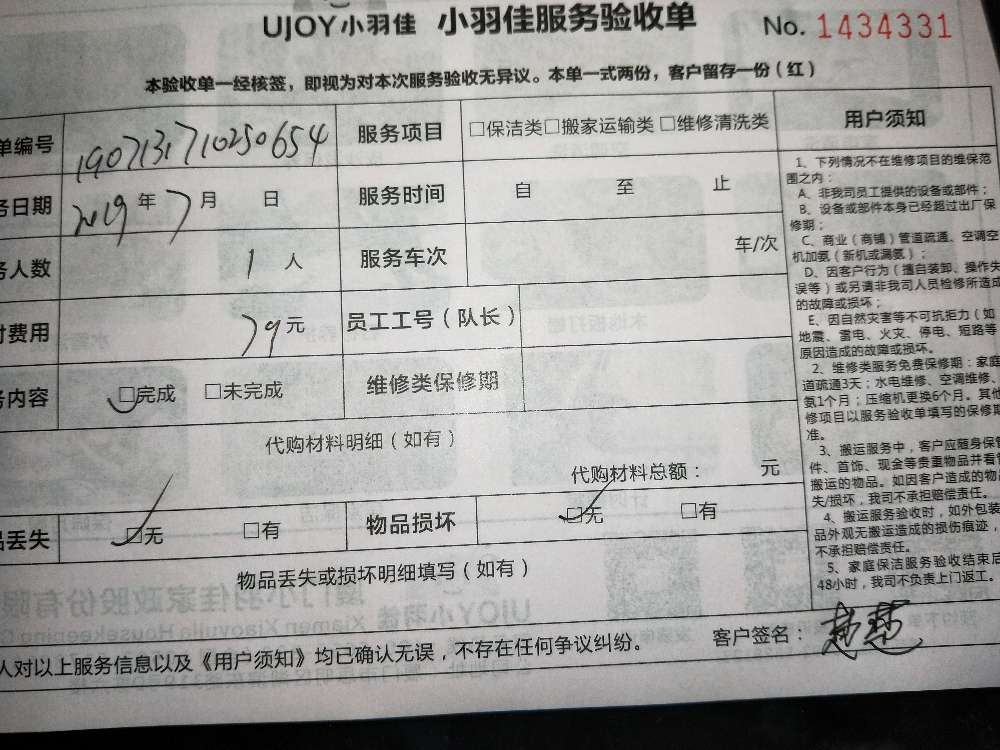 UJOY小羽佳 小羽佳服务验收单 No. 1434331
本验收单一经核签，即视为对本次服务验收无异议。本单一式两份，客户留存一份（红）
单编号 190713171025​0654 服务项目 □保洁类□搬家运输类□维修清洗类
务日期 2019年7月 日 服务时间 自 至 止
务人数 1人 服务车次 车/次
付费用 79元 员工工号（队长）
务内容 □完成 □未完成 维修类保修期
代购材料明细（如有）
代购材料总额： 元
品丢失 □无 □有 物品损坏 □无 □有
物品丢失或损坏明细填写（如有）
人对以上服务信息以及《用户须知》均已确认无误，不存在任何争议纠纷。 客户签名：
用户须知
1、下列情况不在维修项目的维保范
围之内：
A、非我司员工提供的设备或部件；
B、设备或部件本身已经超过出厂保
修期；
C、商业（商铺）管道疏通、空调空
机加氨（新机或漏氨）；
D、因客户行为（擅自装卸、操作失
误等）或另请非我司人员检修所造成
的故障或损坏；
E、因自然灾害等不可抗拒力（如
地震、雷电、火灾、停电、短路等
原因造成的故障或损坏。
2、维修类服务免费保修期：家庭
道疏通3天；水电维修、空调维修、
氨1个月；压缩机更换6个月。其他
修项目以服务验收单填写的保修期
准。
3、搬运服务中，客户应随身保管
件、首饰、现金等贵重物品并看管
搬运的物品。如因客户造成的物品
失/损坏，我司不承担赔偿责任。
4、搬运服务验收时，如外包装
品外观无搬运造成的损伤痕迹，
不承担赔偿责任。
5、家庭保洁服务验收结束后
48小时，我司不负责上门返工。